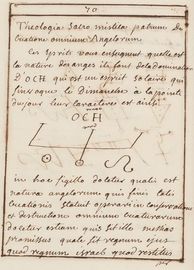 70
Theologia sacro mistica patrum de
Creatione omnium Angelorum
Les Esprits vous enseignent quelle est
la nature des anges ils sont de la domination
D'OCH qui est un esprit solaire qui
que le dimanche à la pointe
du jour leur caractère est ainsi
OCH
in hoc sigillo docetur qualis est
natura angelorum quis finis talis
creationis statuit in conservatione
et destructione omnium creaturarum
docetur etiam quis sit ille
promissus quale sit regnum ejus
quod regnum israel quod